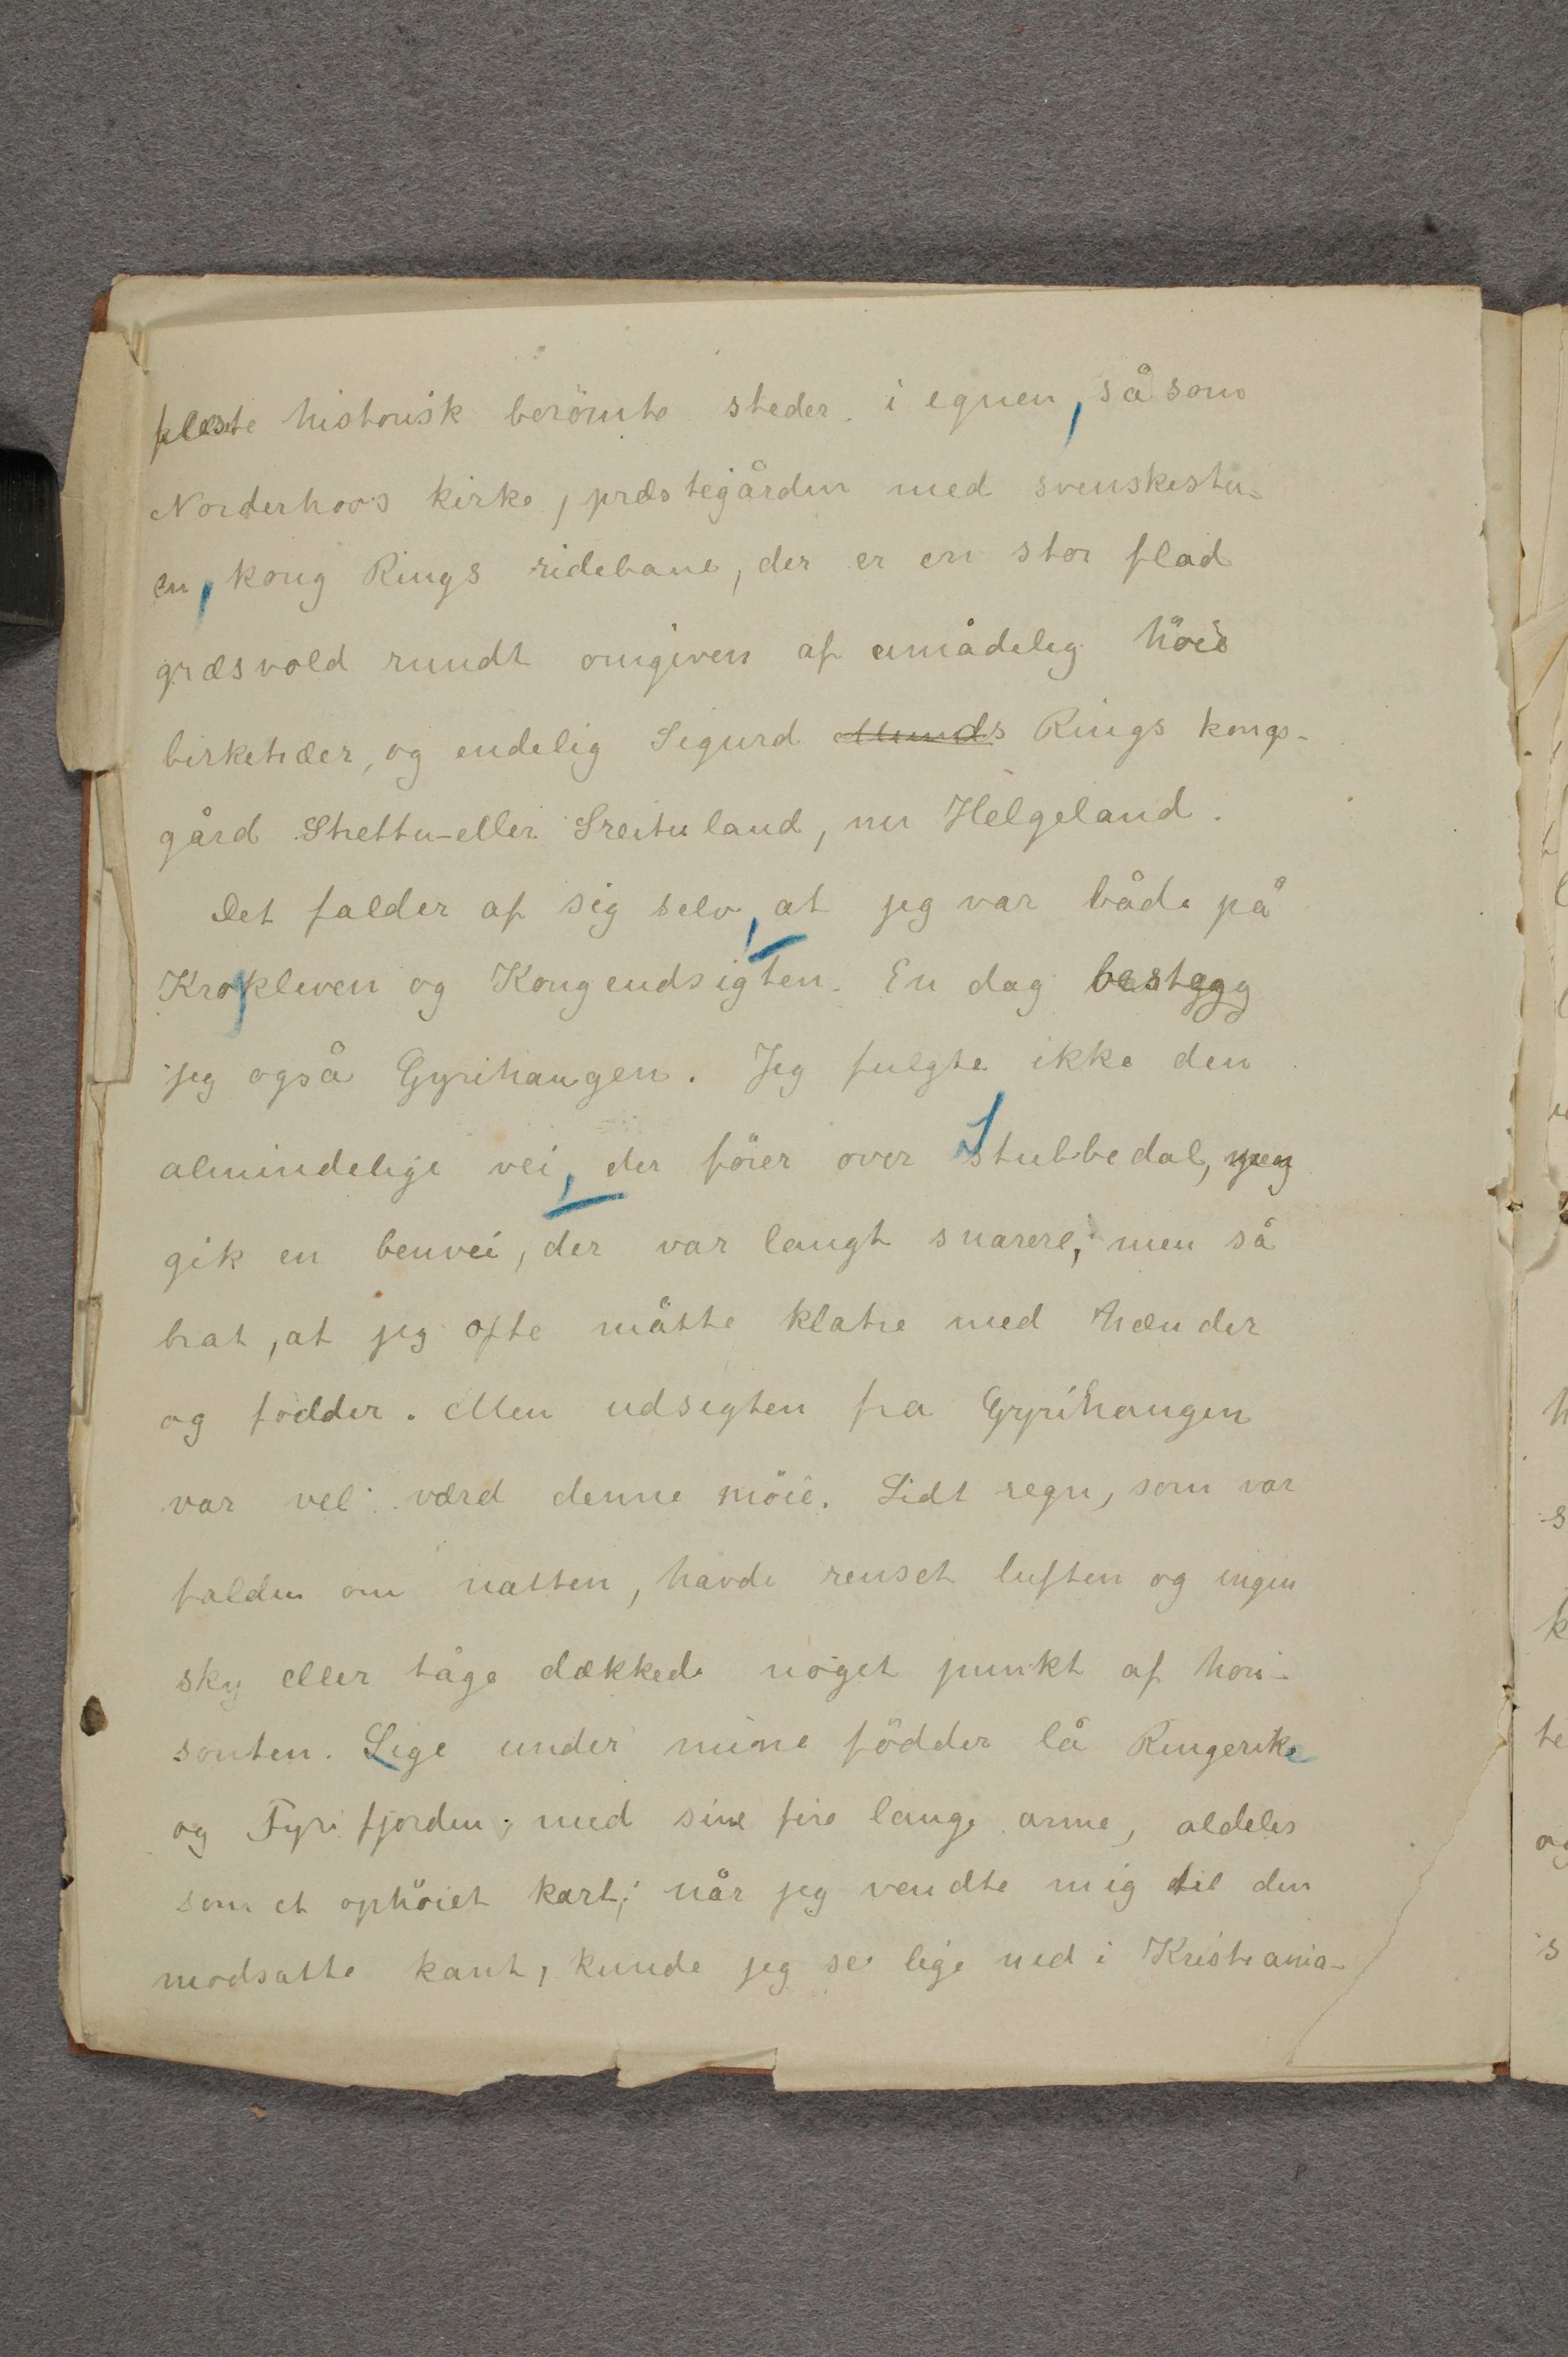 fleste historisk berömte steder i egnen, såsom
Norderhovs kirke, præstegården med svenskestu-
en, kong Rings ridebane, der er en stor flad
græsvold rundt omgiven af umådelig höie
birketræer, og endelig Sigurd Munds Rings kongs-
gård Strettu- eller Sreituland, nu Helgeland.
Det falder af sig selv, at jeg var både på
Krokleven og Kongeudsigten. En dag besteg
jeg også Gyrihaugen. Jeg fulgte ikke den
almindelige vei, der förer over Stubbedal, men
gik en benvei, der var langt snarere, men så
brat, at jeg ofte måtte klatre med hænder
og födder. Men udsigten fra Gyrihaugen
var vel værd denne möie. Lidt regn, som var
falden om natten, havde renset luften og ingen
sky eller tåge dækkede noget punkt af hori-
sonten. Lige under mine födder lå Ringerike
og Tyrifjorden med sine fire lange arme, aldeles
som et ophöiet kart; når jeg vendte mig til den
modsatte kant, kunde jeg se lige ned i Kristiania-